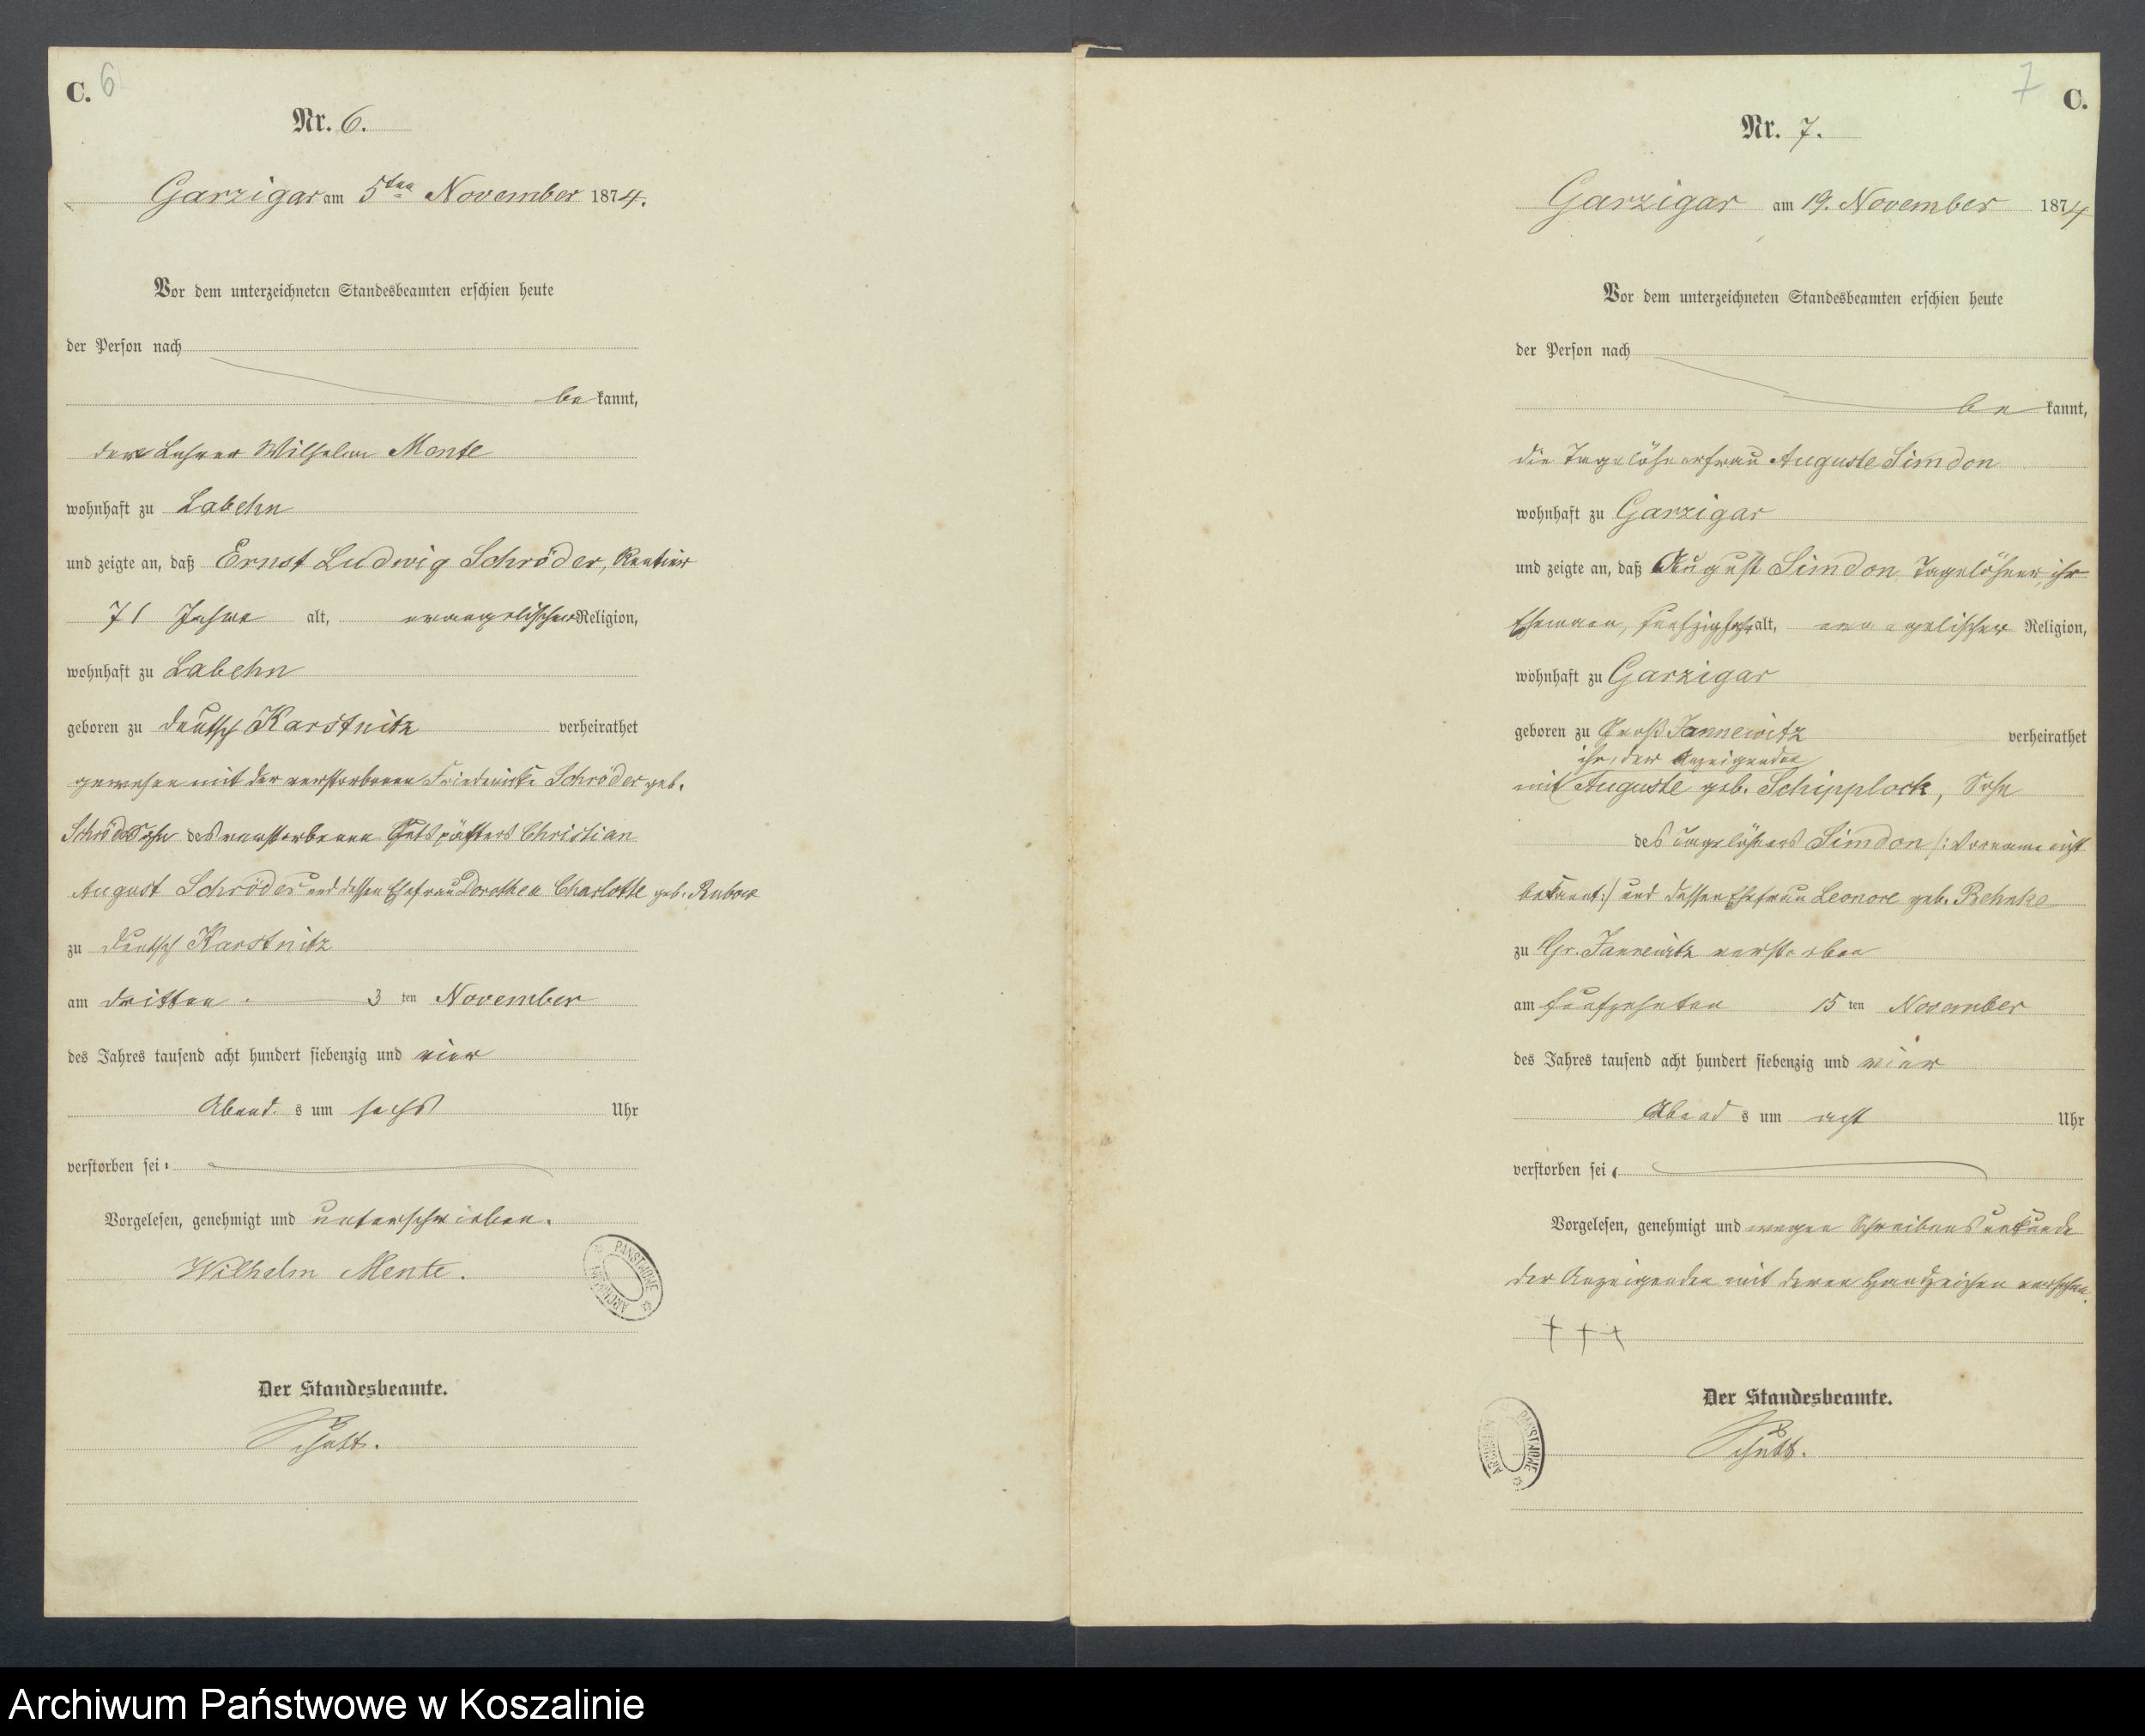 C. 6
Nr. 6.
Garzigar am 5ten November 1874.
Vor dem unterzeichneten Standesbeamten erschien heute
der Person nach
be kannt,
der Lehrer Wilhelm Mente
wohnhaft zu Labehn
und zeigte an, daß Ernst Ludwig Schröder, Rentier
71 Jahre alt, evangelischer Religion,
wohnhaft zu Labehn
geboren zu Deutsch Karstnitz verheirathet
gewesen mit der verstorbenen Friedericke Schröder geb.
Schröder Sohn des verstorbenen Christian
August Schröder und dessen Ehefrau Dorothea Charlotte geb. Rubow
zu Deutsch Karstnitz
am dritten 3 ten November
des Jahres tausend acht hundert siebenzig und vier
Abend s um sechs Uhr
verstorben sei.
Vorgelesen, genehmigt und unterschrieben.
Wilhelm Mente.
ARCHIWUM PAŃSTWOWE
Der Standesbeamte.
7 C.
Nr. 7.
Garzigar am 19. November 1874
Vor dem unterzeichneten Standesbeamten erschien heute
der Person nach
be kannt,
die Tagelöhnerfrau Auguste Simdon
wohnhaft zu Garzigar
und zeigte an, daß August Simdon Tagelöhner, ihr
Ehemann, funfzig Jahr alt, evangelischer Religion,
wohnhaft zu Garzigar
geboren zu Groß Jannewitz verheirathet
ihr, der Anzeigenden
mit Auguste geb. Schipplock, Sohn
des Tagelöhners Simdon /: Vorname nicht
bekannt :/ und dessen Ehefrau Leonore geb. Behnke
zu Gr. Jannewitz verstorben
am funfzehnten 15 ten November
des Jahres tausend acht hundert siebenzig und vier
Abend s um acht Uhr
verstorben sei.
Vorgelesen, genehmigt und wegen Schreibensunkunde
der Anzeigenden mit deren Handzeichen versehen.
+ + +
Der Standesbeamte.
ARCHIWUM PAŃSTWOWE
Archiwum Państwowe w Koszalinie